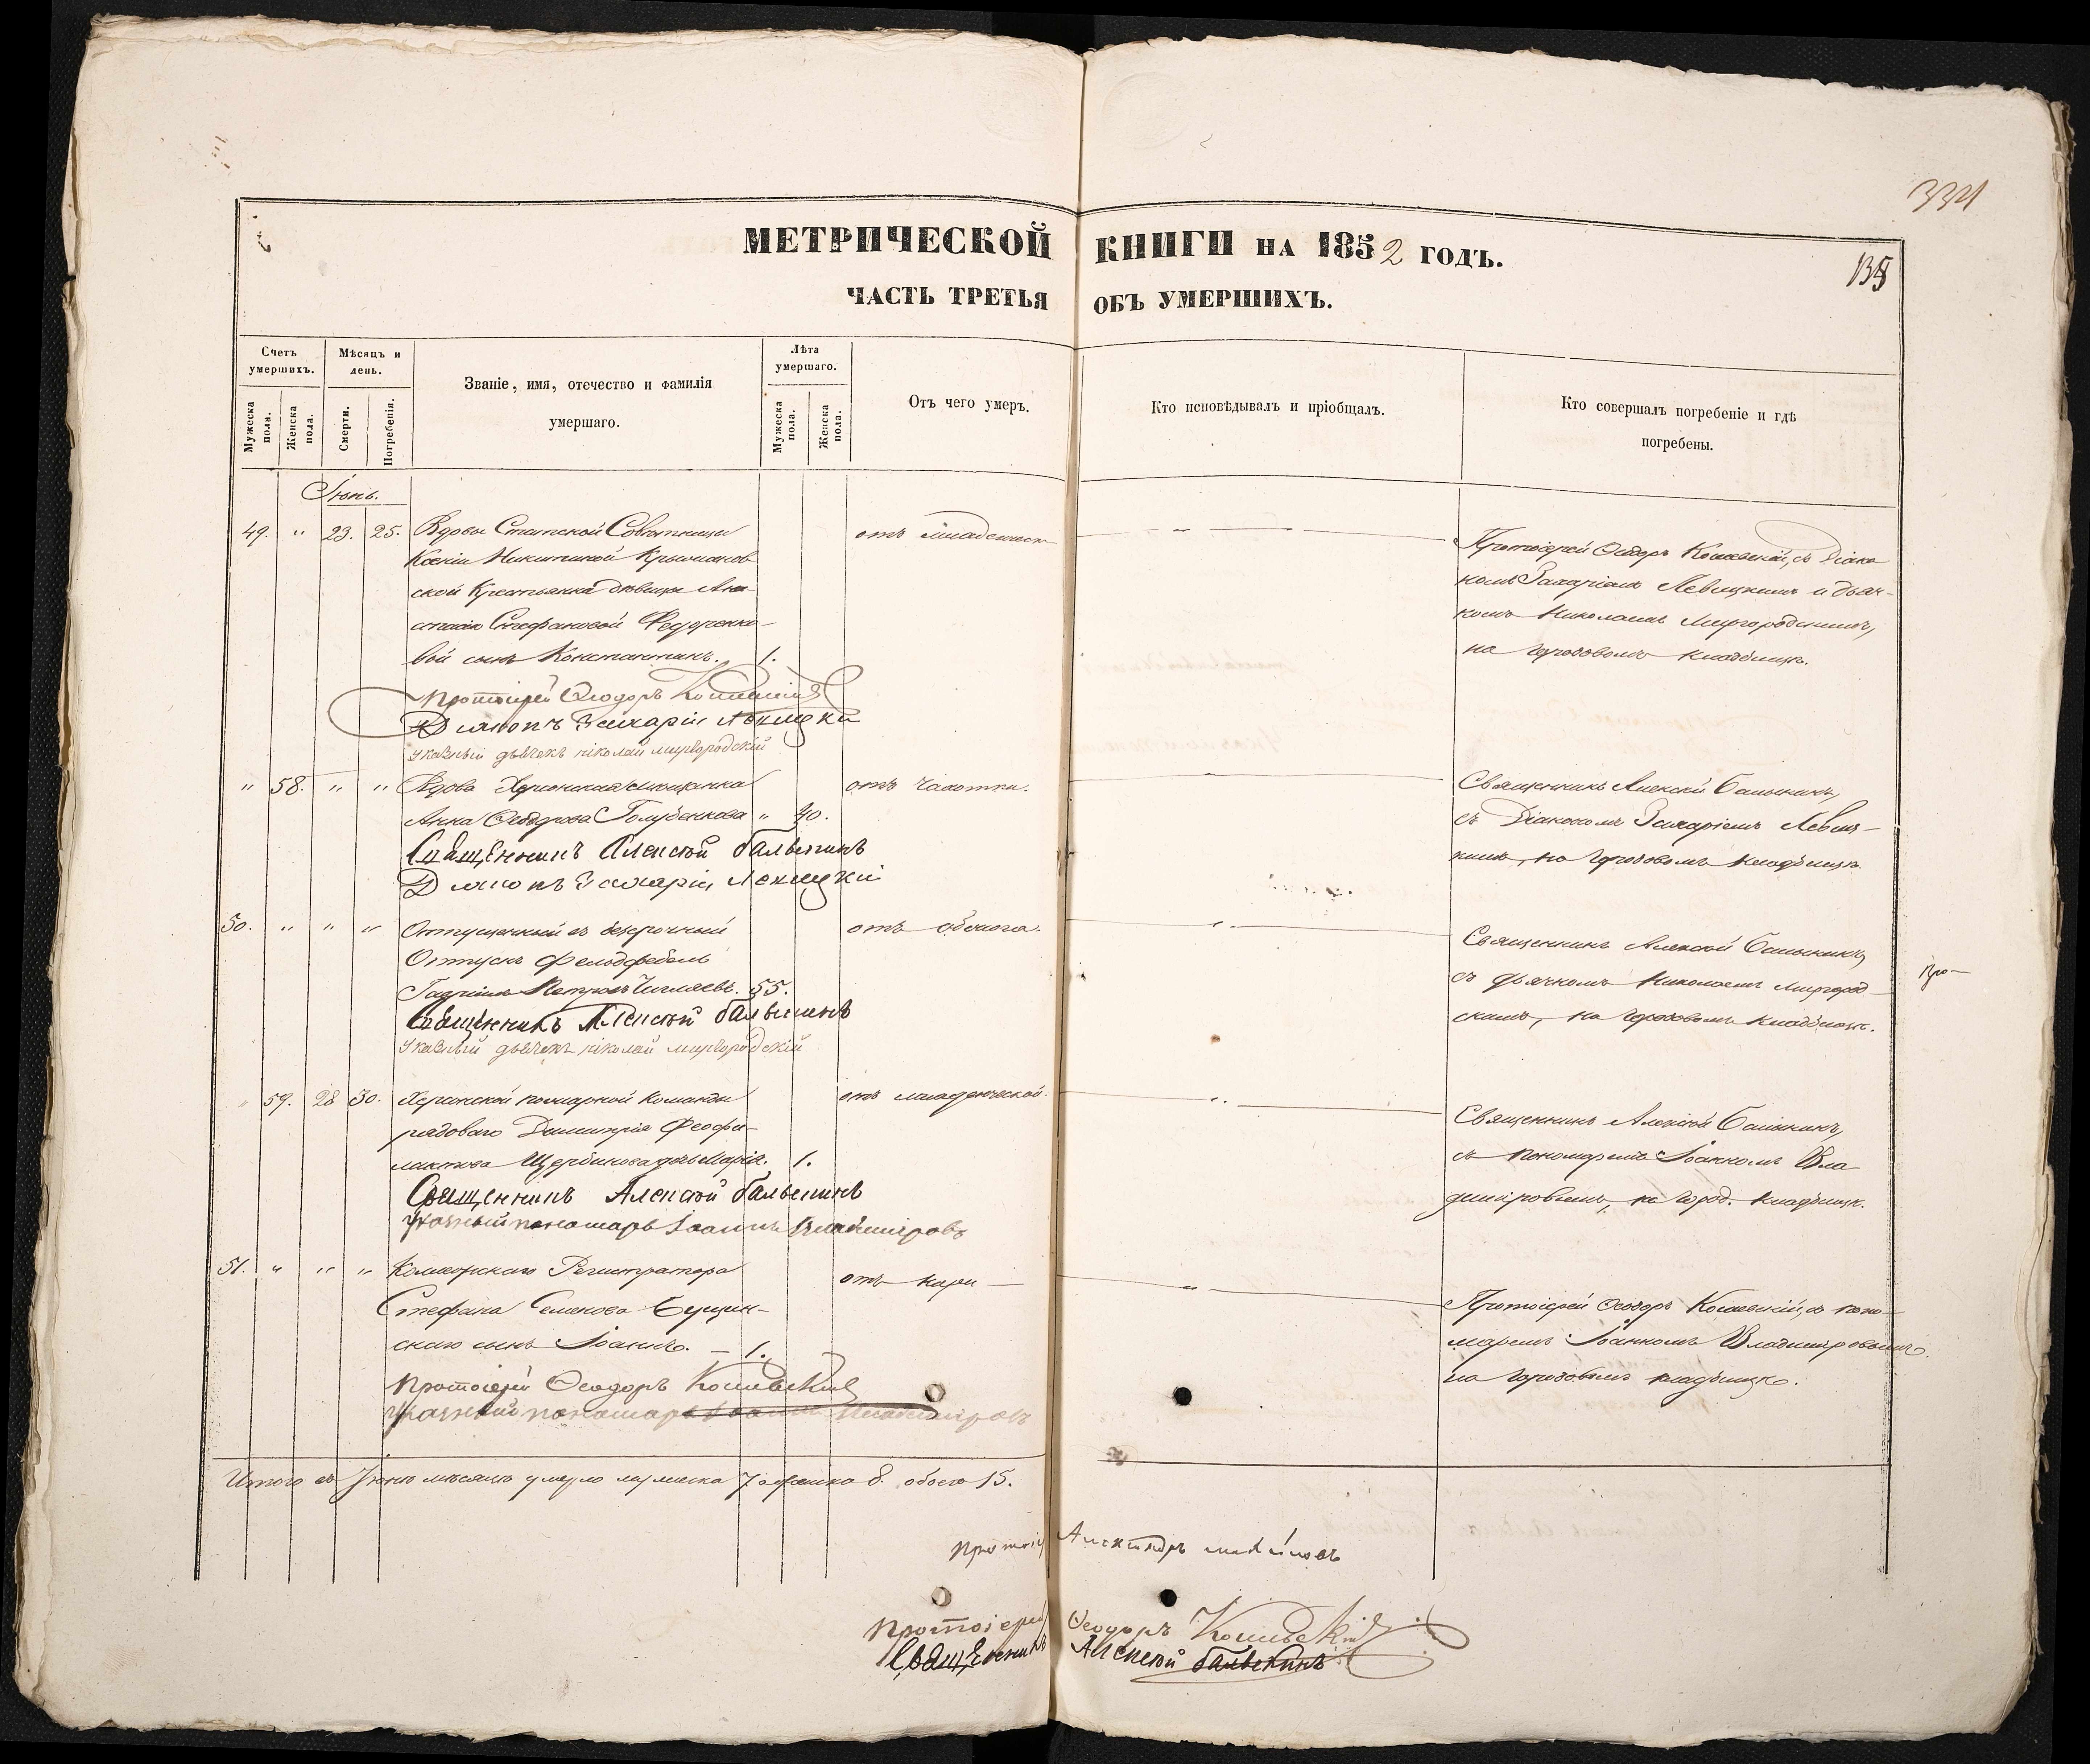 334
МЕТРИЧЕСКОЙ КНИГИ НА 1852 ГОДЪ.
135
ЧАСТЬ ТРЕТЬЯ ОБЪ УМЕРШИХЪ.
Счетъ умершихъ.
Мужеска пола.
Женска пола.
Мѣсяцъ и день.
Смерти.
Погребенія.
Званіе, имя, отечество и фамилія
умершаго.
Лѣта умершаго.
Мужеска пола.
Женска пола.
Отъ чего умеръ.
Кто исповѣдывалъ и пріобщалъ.
Кто совершалъ погребеніе и гдѣ
погребены.
Іюнь.
49. " 23. 25. Вдовы Статской Совѣтницы
Ксеніи Никитиной
ской Крестьянки дѣвицы Ана-
стасіи Стефановой Федоренко-
вой сынъ Константинъ. 1.
отъ
Протоіерей Ѳеодоръ съ Діако-
номъ Захаріемъ Левицкимъ и дьяч-
комъ Николаемъ Миргородскимъ,
на городовомъ кладбищѣ.
Протоіерей Ѳеодоръ
Діаконъ Захарій Левицкій
Указный дьячекъ Николай Миргородскій
" 58. " " Вдова Херсонская мѣщанка
Анна Ѳеодорова Голубенкова " 40.
отъ чахотки.
Священникъ Алексій Балыкинъ,
съ Діакономъ Захаріемъ Левиц-
кимъ, на городовомъ кладбищѣ.
Священникъ Алексій Балыкинъ
Діаконъ Захарій Левицкій
50. " " " Отпущенный въ безсрочный
Отпускъ Фельдфебель
Гавріилъ Петровъ 55.
отъ
Священникъ Алексій Балыкинъ,
съ дьячкомъ Николаемъ Миргород-
скимъ, на городовомъ кладбищѣ.
Про-
Священникъ Алексій Балыкинъ
Указный дьячекъ Николай Миргородскій
" 59. 28 30. Херсонской пожарной команды
рядоваго Димитрія Феофи-
лактова Щербинова дочь Марія. 1.
отъ младенческой.
Священникъ Алексій Балыкинъ,
съ пономаремъ Іоанномъ Вла-
диміровымъ, на город. кладбищѣ.
Священникъ Алексій Балыкинъ
Указный пономарь Іоаннъ Владиміровъ
51. " " " Коллежскаго Регистратора
Стефана Семенова
скаго сынъ Іоаннъ. — 1.
отъ кори —
Протоіерей Ѳеодоръ съ поно-
маремъ Іоанномъ Владиміровымъ
на городовомъ кладбищѣ.
Протоіерей Ѳеодоръ
Указный пономарь Іоаннъ Владиміровъ
Итого въ Іюнѣ мѣсяцѣ умерло мужеска 7 а женска 8. обоего 15.
Протоіерей Александръ
Протоіерей Ѳеодоръ
Священникъ Алексій Балыкинъ